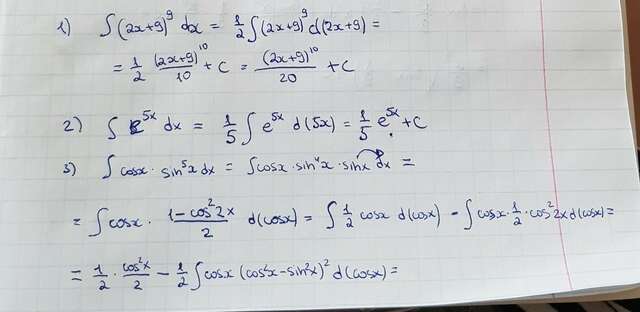 1) ∫(2x+9)⁹ dx = 1/2 ∫(2x+9)⁹ d(2x+9) =
= 1/2 (2x+9)¹⁰/10 + C = (2x+9)¹⁰/20 + C
2) ∫ e⁵ˣ dx = 1/5 ∫ e⁵ˣ d(5x) = 1/5 e⁵ˣ + C
3) ∫ cosx · sin⁵x dx = ∫cosx · sin⁴x · sinx dx =
= ∫ cosx · (1-cos²2x)/2 d(cosx) = ∫ 1/2 cosx d(cosx) - ∫ cosx · 1/2 · cos²2x d(cosx) =
= 1/2 · cos²x/2 - 1/2 ∫ cosx (cos²x-sin²x)² d(cosx) =